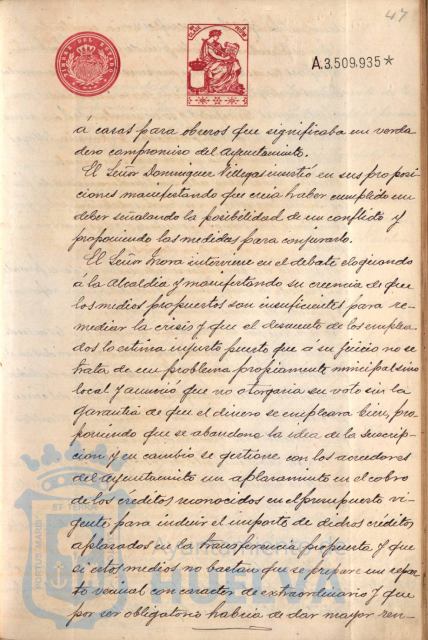 47
TIMBRE DEL ESTADO
A.3.509.935*
á casas para obreros que significaba un verda
dero compromiso del Ayuntamiento.
El Señor Dominguez Villegas insistió en sus proposi
ciones manifestando que creia haber cumplido un
deber señalando la posibilidad de un conflicto y
proponiendo las medidas para conjurarlo.
El Señor Mora interviene en el debate elogiando
á la Alcaldia y manifestando su creencia de que
los medios propuestos son insuficientes para re-
mediar la crisis y que el descuento de los emplea
dos lo estima injusto puesto que á su juicio no se
trata de un problema propiamente municipal sino
local y anunció que no otorgaria su voto sin la
garantía de que el dinero se empleara bien, pro
poniendo que se abandone la idea de la suscrip-
cion y en cambio se gestione con los acreedores
del Ayuntamiento un aplazamiento en el cobro
de los creditos reconocidos en el presupuesto vi-
gente para incluir el importe de dichos creditos
aplazados en la transferencia propuesta y que
si estos medios no bastan que se prepare un repar
to vecinal con caracter de extraordinario y que
por ser obligatorio habria de dar mayor ren-
ET TERRÆ
PORTUS MARIS
Ayuntamiento de
HUELVA